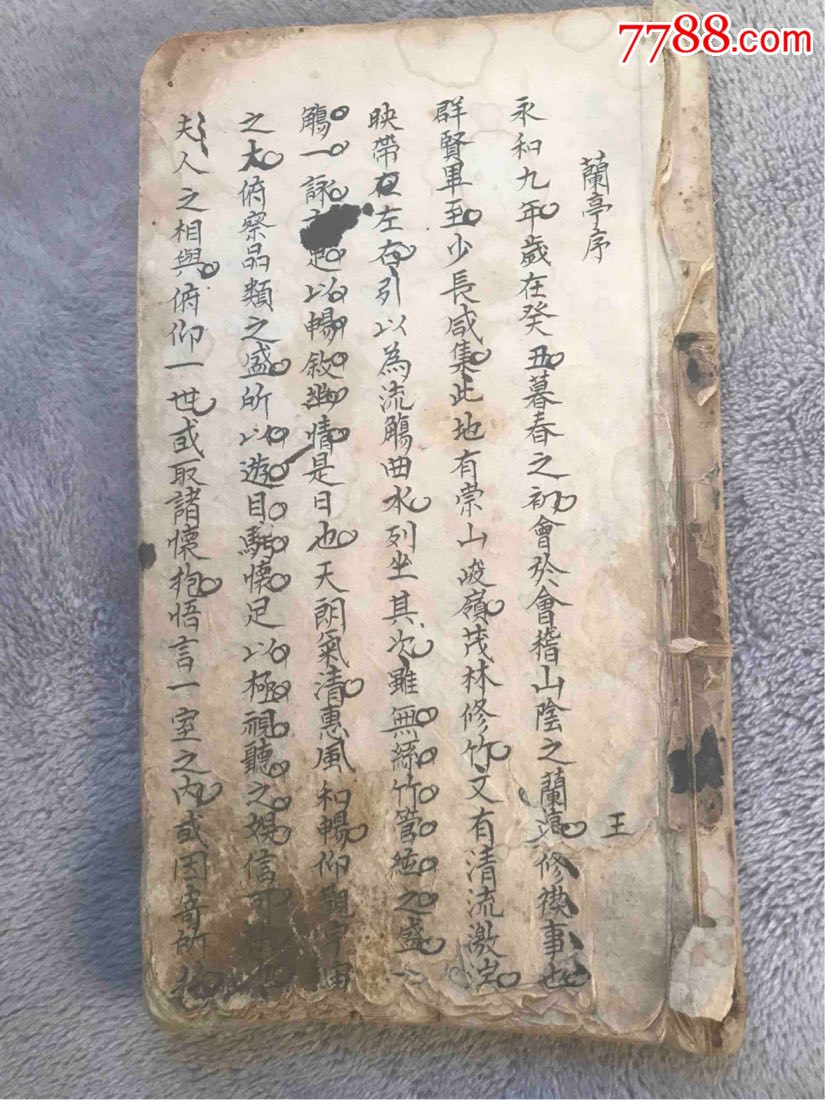 7788.com
蘭亭序
王
永和九年歲在癸丑暮春之初會於會稽山陰之蘭亭修禊事也
群賢畢至少長咸集此地有崇山峻嶺茂林修竹文有清流激湍
映帶在左右引以為流觴曲水列坐其次雖無絲竹管絃之盛一
觴一詠起以暢敘幽情是日也天朗氣清惠風和暢仰觀宇宙
之大俯察品類之盛所以遊目騁懷足以極視聽之娛信可
夫人之相與俯仰一世或取諸懷抱悟言一室之內或因寄所